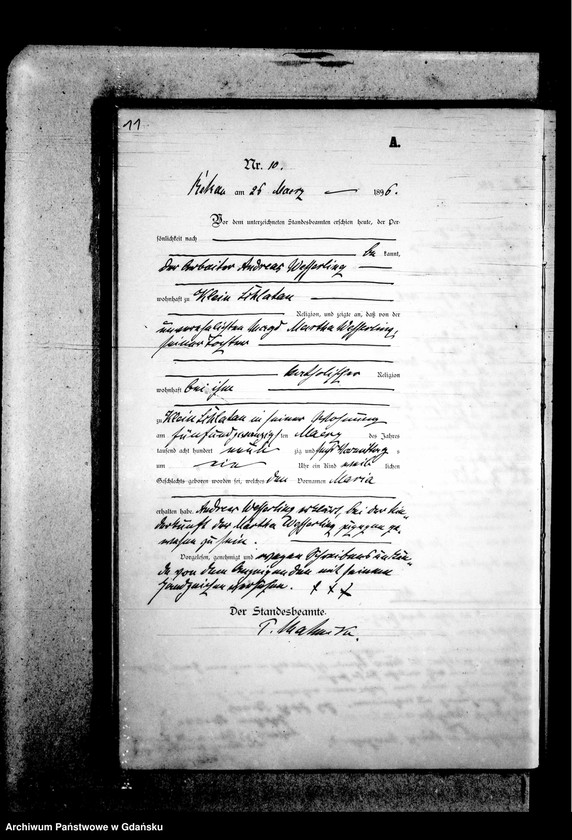 11
A.
Nr. 10.
am 26 Maerz 1896.
Vor dem unterzeichneten Standesbeamten erschien heute, der Per-
sönlichkeit nach
be kannt,
der Arbeiter Andreas Wesserling
wohnhaft zu Klein
Religion, und zeigte an, daß von der
unverehelichten Magd Martha Wesserling,
seiner Tochter
katholischer Religion
wohnhaft bei ihm
zu Klein in seiner Wohnung
am fünfundzwanzig ten Maerz des Jahres
tausend acht hundert neun zig und sechs Vormittag s
um ein Uhr ein Kind weib lichen
Geschlechts geboren worden sei, welches den Vornamen Maria
erhalten habe. Andreas Wesserling erklärt, bei der Nie-
derkunft der Martha Wesserling zugegen ge-
wesen zu sein.
Vorgelesen, genehmigt und wegen Schreibensunkun-
de von dem Anzeigenden mit seinem
Handzeichen versehen. + + +
Der Standesbeamte.
Archiwum Państwowe w Gdańsku